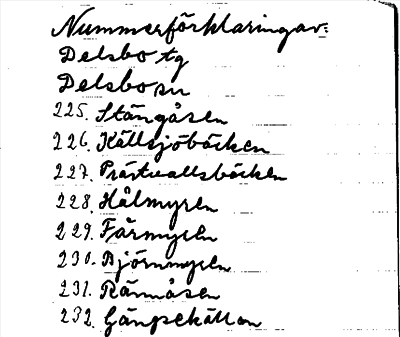 Nummerförklaringar:
Delsbo tg
Delsbo sn
225. Stångåsen
226. Källsjöbäcken
227. Prästvallsbäcken
228. Hålmyren
229. Fårmyren
230. Björnmyren
231. Rännåsen
232.